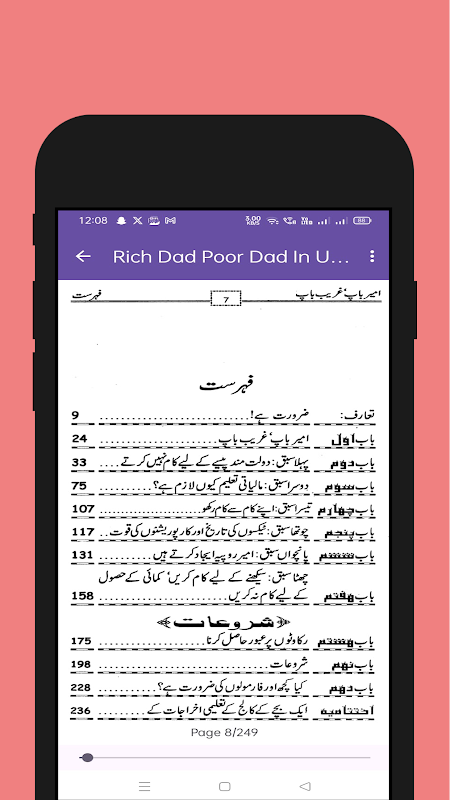 12:08 3.00 KB/S 88
Rich Dad Poor Dad In U...
امیر باپ‘ غریب باپ 7 فہرست
فہرست
تعارف: ضرورت ہے!........................ 9
باب اول امیر باپ‘ غریب باپ........................ 24
باب دوم پہلا سبق: دولت مند پیسے کے لیے کام نہیں کرتے.... 33
باب سوم دوسرا سبق: مالیاتی تعلیم کیوں لازم ہے؟............ 75
باب چہارم تیسرا سبق: اپنے کام سے کام رکھو............ 107
باب پنجم چوتھا سبق: ٹیکسوں کی تاریخ اور کارپوریشنوں کی قوت.. 117
باب ششم پانچواں سبق: امیر روپیہ ایجاد کرتے ہیں............ 131
چھٹا سبق: سیکھنے کے لیے کام کریں‘ کمائی کے حصول
باب ہفتم کے لیے کام نہ کریں........................ 158
شروعات
باب ہشتم رکاوٹوں پر عبور حاصل کرنا............ 175
باب نہم شروعات........................ 198
باب دہم کیا کچھ اور فارمولوں کی ضرورت ہے؟............ 228
اختتامیہ ایک بچے کے کالج کے تعلیمی اخراجات کے.......... 236
Page 8/249